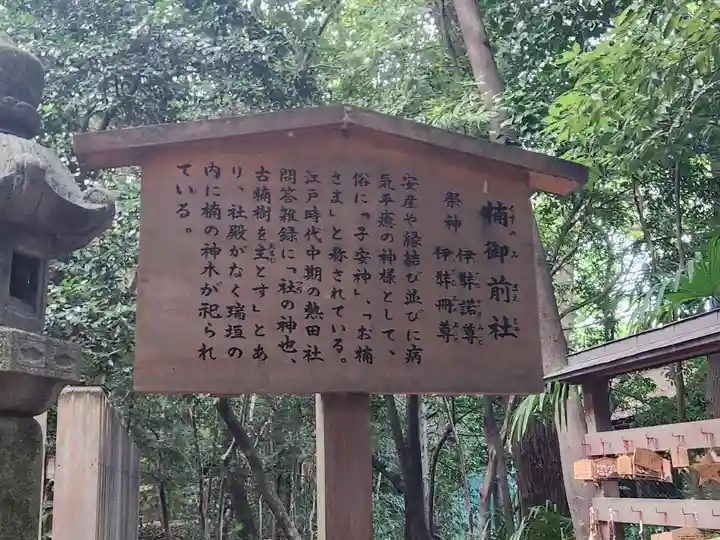 楠御前社
祭神 伊弉諾尊
伊弉冊尊
安産や縁結び並びに病
気平癒の神様として、
俗に「子安神」、「お楠
さま」と称されている。
江戸時代中期の熱田社
問答雑録に「社の神也、
古楠樹を主とす」とあ
り、社殿がなく瑞垣の
内に楠の神木が祀られ
ている。